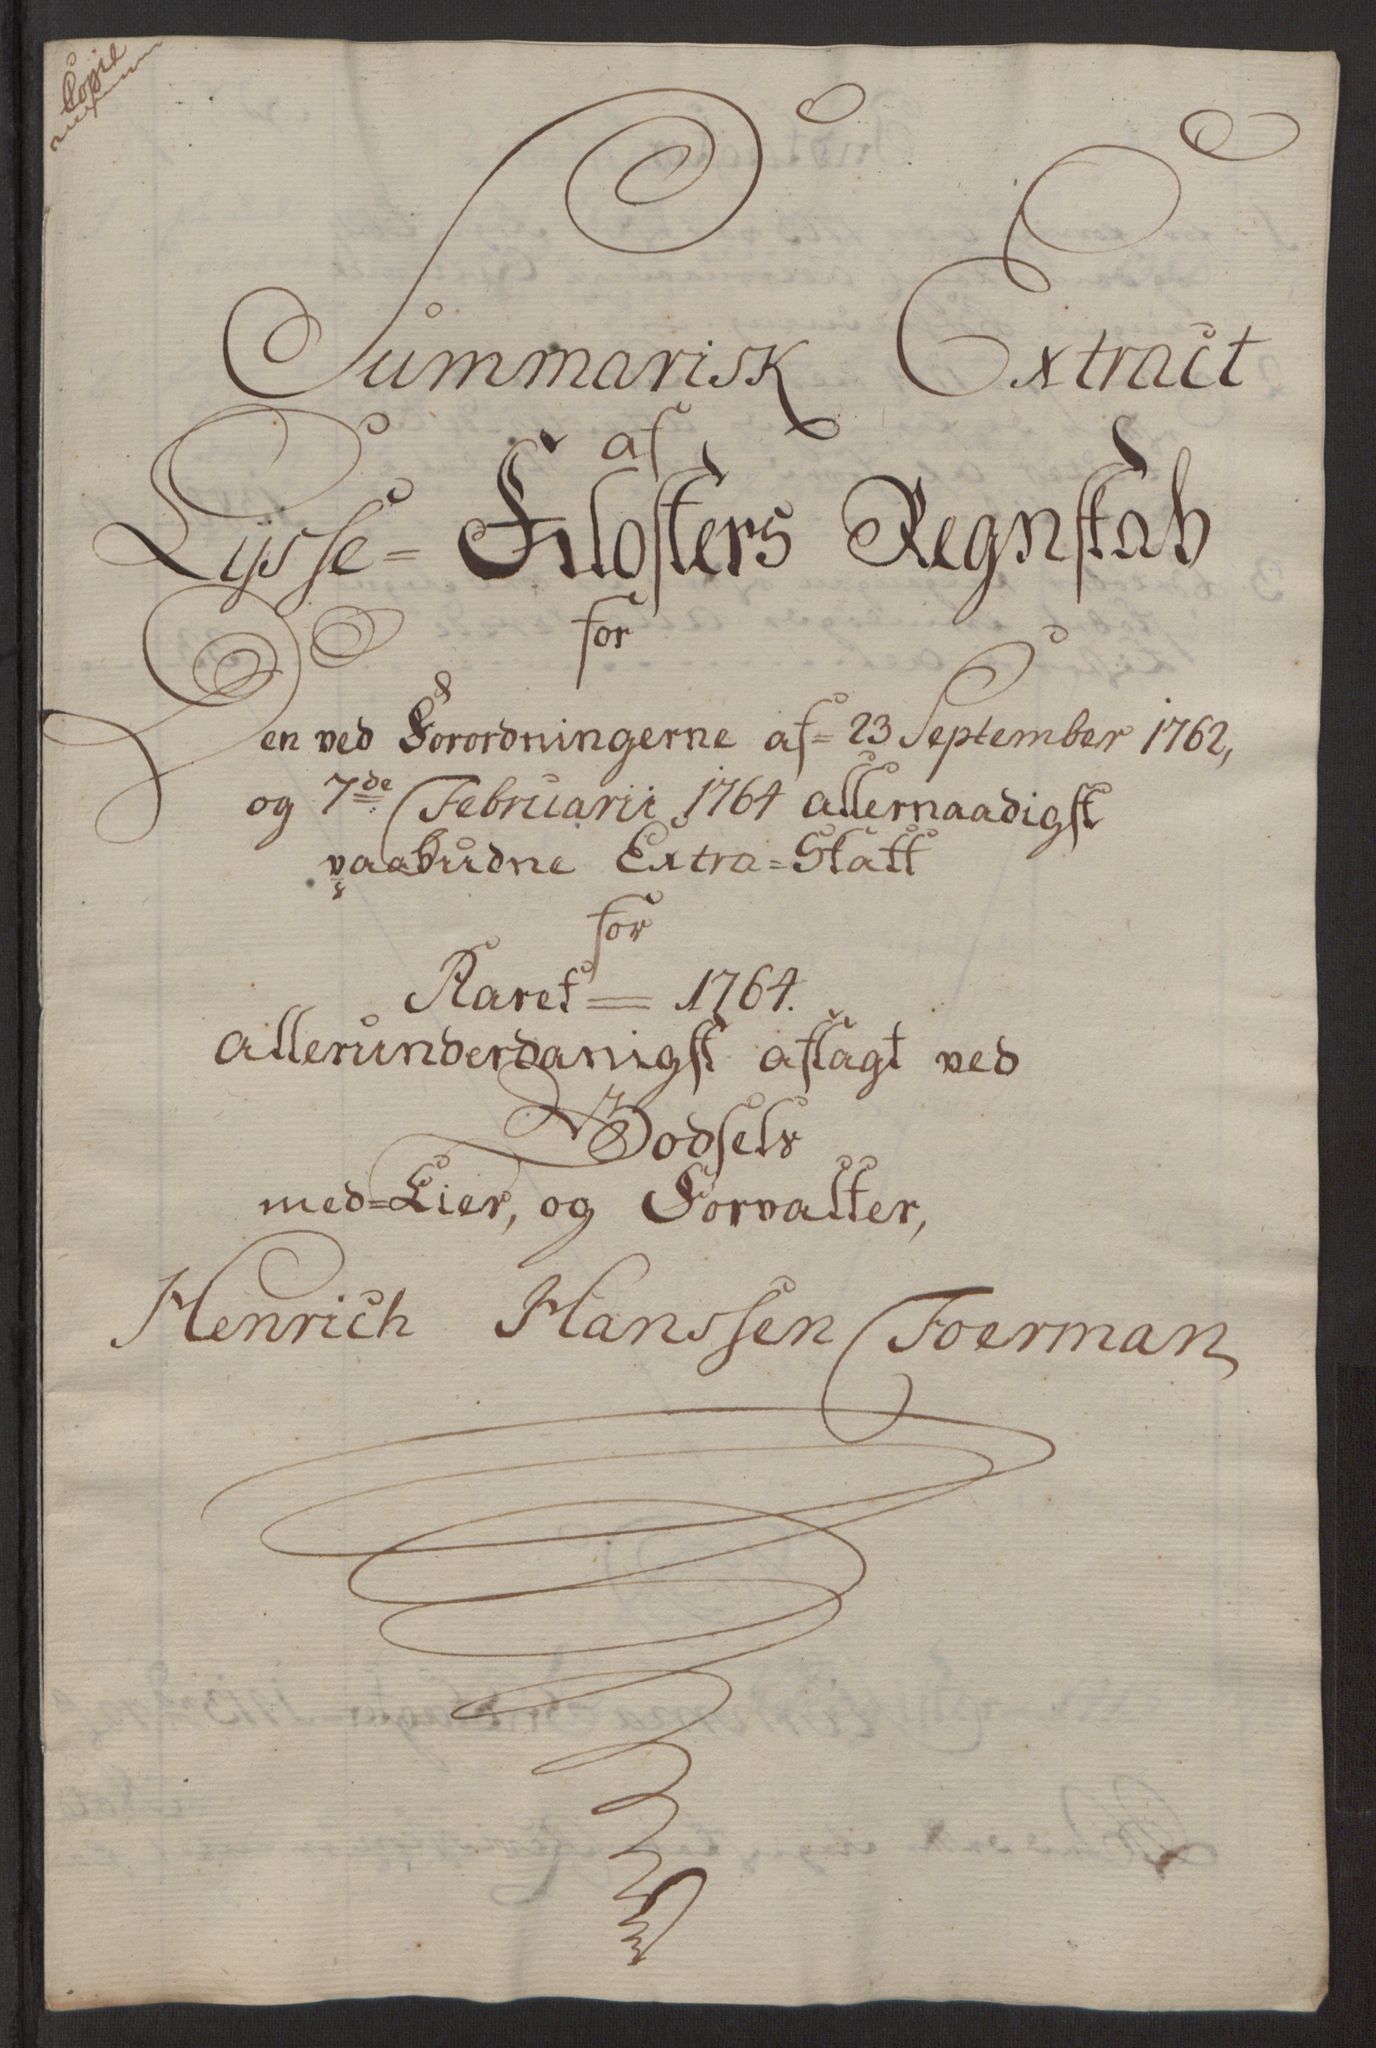 Copie
Summarisk Extract
af
Lysse-Klosters Regnskab
for
Den ved Forordningerne af 23 September 1762,
og 7de Februarii 1764 allernaadigst
paabudne Extra-Skatt
for
Aaret = 1764.
allerunderdanigst aflagt ved
Godsets
med-Eier, og Forvalter,
Henrich Hanssen Foerman